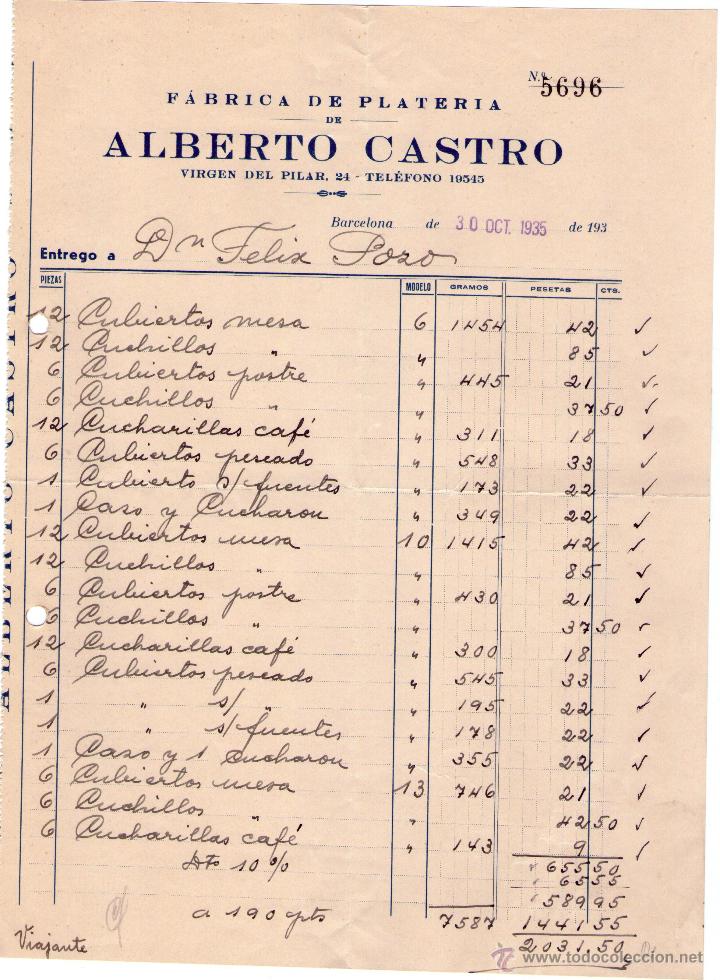 N.º 5696
FÁBRICA DE PLATERIA
DE
ALBERTO CASTRO
VIRGEN DEL PILAR, 24 - TELÉFONO 19545
Barcelona de 30 OCT. 1935 de 193
Entrego a Dn Felix Pozo
PIEZAS MODELO GRAMOS PESETAS CTS.
12 Cubiertos mesa 6 1454 42 ✓
12 Cuchillos " " 85 ✓
6 Cubiertos postre " 445 21 ✓
6 Cuchillos " " 37 50 ✓
12 Cucharillas café " 311 18 ✓
6 Cubiertos pescado " 548 33 ✓
1 Cubierto s/ fuentes " 173 22 ✓
1 Cazo y Cucharon " 349 22 ✓
12 Cubiertos mesa 10 1415 42 ✓
12 Cuchillos " " 85 ✓
6 Cubiertos postre " 430 21 ✓
6 Cuchillos " " 37 50 ✓
12 Cucharillas café " 300 18 ✓
6 Cubiertos pescado " 545 33 ✓
1 " s/ " " 195 22 ✓
1 " s/ fuentes " 178 22 ✓
1 Cazo y 1 cucharon " 355 22 ✓
6 Cubiertos mesa 13 746 21 ✓
6 Cuchillos " " 42 50 ✓
6 Cucharillas café " 143 9 ✓
Dto 10 % 655 50
65 55
589 95
a 190 pts 7587 1441 55
2031,50
Viajante
ALBERTO CASTRO
todocoleccion
www.todocoleccion.net